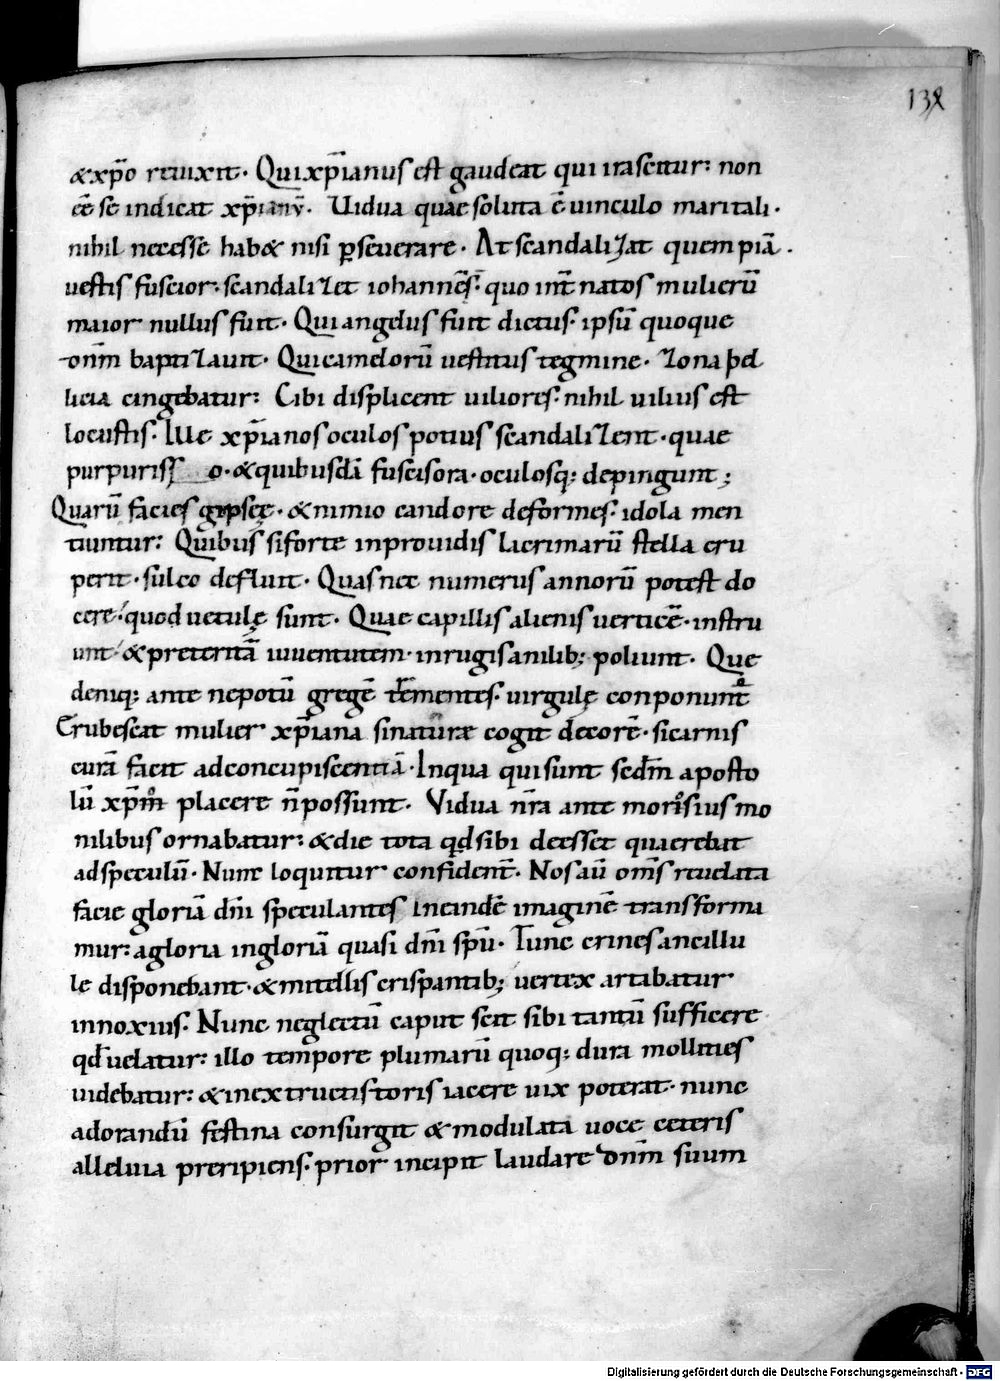 138
&xp̄o reuixit· Qui xp̄ianus est gaudeat qui irascitur: non
ēe se indicat xp̄ianū· Uidua quae soluta ē uinculo maritali·
nihil necesse hab& nisi ꝑseuerare· At scandalizat quempiā·
uestis fuscior· scandalizet iohannēs· quo int̄ natos mulierū
maior nullus fuit· Qui angelus fuit dictus· ipsū quoque
dnm̄ baptizauit· Qui camelorū uestitus tegmine· zona pel
licia cingebatur: Cibi displicent uiliores· nihil uilius est
locustis· Ille xp̄ianos oculos potius scandalizent· quae
purpuriss o· & quibusdā fuscis ora· oculosq; depingunt;
Quarū facies gipseę· & nimio candore deformes· idola men
tiuntur: Quibus si forte inprouidis lacrimarū stella eru
perit· sulco defluit· Quas nec numerus annorū potest do
cere· quod uetulę sunt· Quae capillis alienis uerticē· instru
unt· & preteritā iuuentutem· in rugis anilib; poliunt· Que
deniq; ante nepotū gregē trementes· uirgulę conponunt᷑
Erubescat mulier xp̄iana si naturae cogit decorē· si carnis
curā facit ad concupiscentiā· In qua qui sunt sed̄m aposto
lū xp̄m placere n̄ possunt· Vidua nr̄a ante morosius mo
nilibus ornabatur: & die tota qd̄ sibi deesset quaerebat
ad speculū· Nunc loquitur confident̄· Nos aū om̄s reuelata
facie gloriā dn̄i speculantes in eandē imaginē transforma
mur: a gloria in gloriā quasi dn̄i spū· Tunc crines ancillu
le disponebant· & mitellis crispantib; uertex artabatur
innoxius· Nunc neglectū caput scit sibi tantū sufficere
qd̄ uelatur: illo tempore plumarū quoq; dura mollities
uidebatur: & in extructis toris iacere uix poterat· nunc
ad orandū festina consurgit & modulata uoce ceteris
alleluia preripiens· prior incipit laudare dnm̄ suum
Digitalisierung gefördert durch die Deutsche Forschungsgemeinschaft - DFG